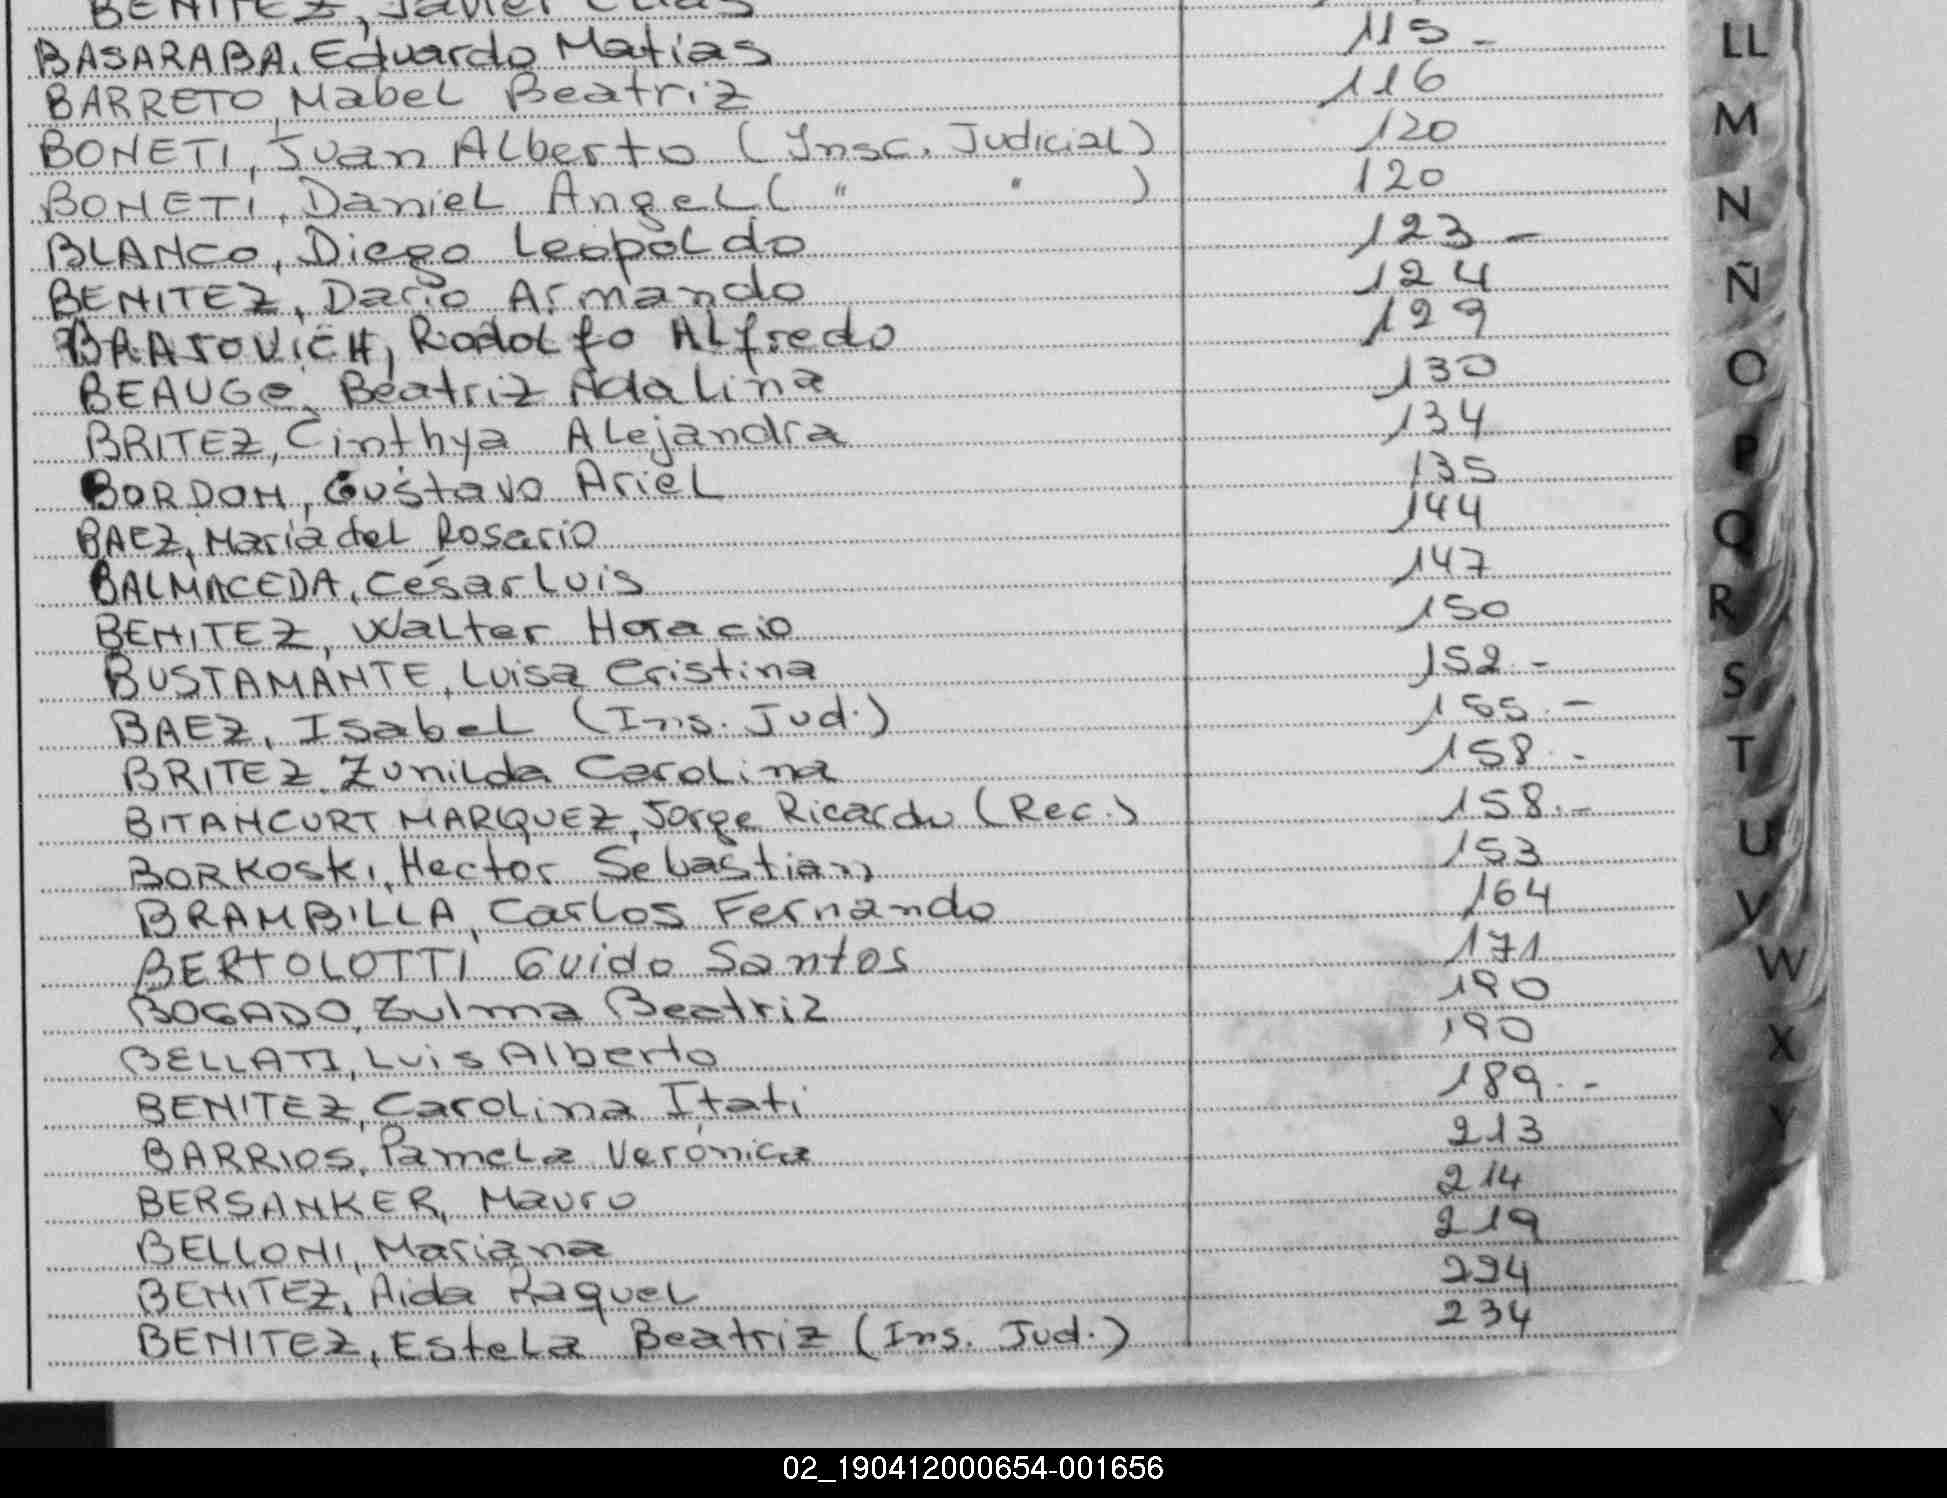 BENITEZ, Javier Elias
BASARABA, Eduardo Matías 115 -
BARRETO, Mabel Beatriz 116
BONETI, Juan Alberto (Insc. Judicial) 120
BONETI, Daniel Angel ( " " ) 120
BLANCO, Diego Leopoldo 123 -
BENITEZ, Dario Armando 124
Rodolfo Alfredo 129
BEAUGE, Beatriz Adalina 130
BRITEZ, Cinthya Alejandra 134
BORDON, Gustavo Ariel 135
BAEZ, María del Rosario 144
BALMACEDA, César Luis 147
BENITEZ, Walter Horacio 150
BUSTAMANTE, Luisa Cristina 152 -
BAEZ, Isabel (Ins. Jud.) 155 -
BRITEZ, Zunilda Carolina 158 -
BITANCURT MARQUEZ, Jorge Ricardo (Rec.) 158 -
BORKOSKI, Hector Sebastian 153
BRAMBILLA, Carlos Fernando 164
BERTOLOTTI Guido Santos 171
BOGADO, Zulma Beatriz 190
BELLATI, Luis Alberto 190
BENITEZ, Carolina Itati 189 -
BARRIOS, Pamela Verónica 213
BERSANKER, Mauro 214
BELLONI, Mariana 219
BENITEZ, Aida Raquel 224
BENITEZ, Estela Beatriz (Ins. Jud.) 234
LL
M
N
Ñ
O
P
Q
R
S
T
U
V
W
X
Y
02_190412000654-001656